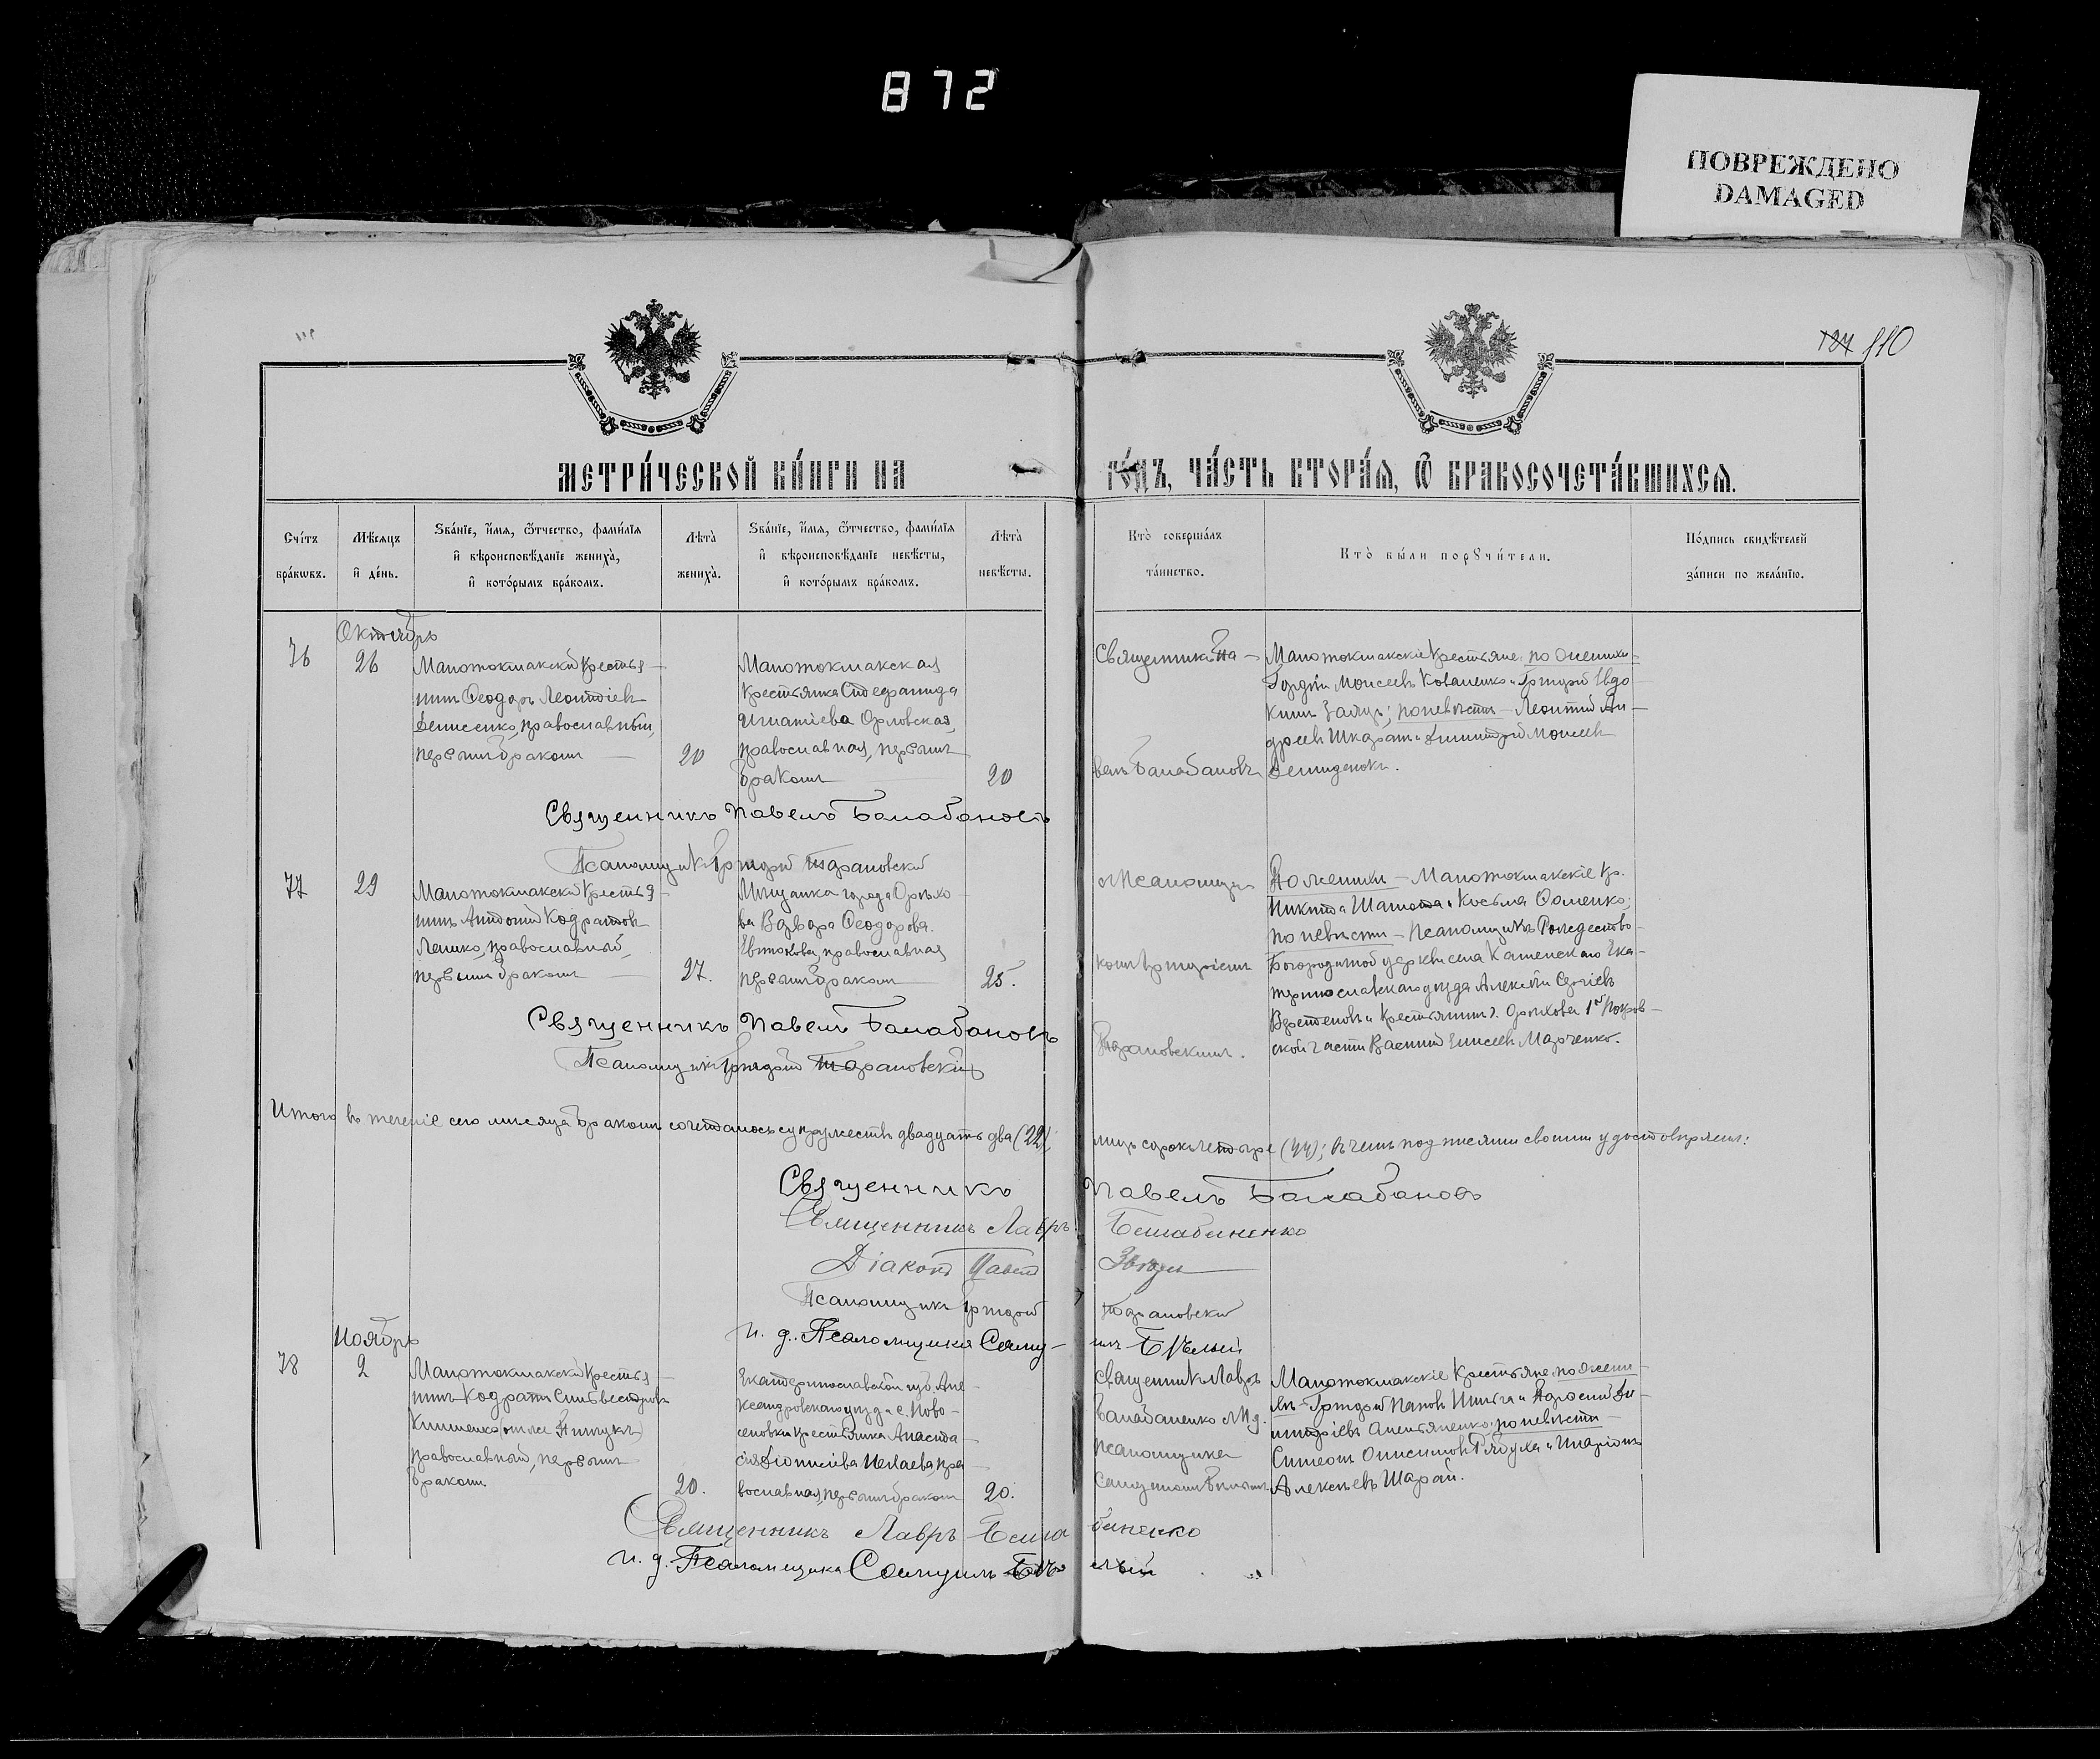 872
ПОВРЕЖДЕНО
DAMAGED
127 110
МЕТРИ́ЧЕСКОЙ КНИ́ГИ НА ГО́ДЪ, ЧА́СТЬ ВТОРА́Я, Ѽ БРАКОСОЧЕТА́ВШИХСЯ.
Сче́тъ бра́кωвъ.
Мѣ́сяцъ и҆ де́нь.
Ѕва́нїе, и҆́мя, ѻ҆́тчество, фами́лїя
и҆ вѣроисповѣ́данїе жениха̀,
и҆ кото́рымъ бра́комъ.
Лѣта̀ жениха̀.
Ѕва́нїе, и҆́мя, ѻ҆́тчество, фами́лїя
и҆ вѣроисповѣ́данїе невѣ́сты,
и҆ кото́рымъ бра́комъ.
Лѣта̀ невѣ́сты.
Кто̀ соверша́лъ та́инство.
Кто̀ бы́ли порꙋчи́тели.
По́дпись свидѣ́телей за́писи по жела́нїю.
Октябрь
76
26
Малотокмакскій крестья-
нинъ Ѳеодоръ Леонтіевъ
Денисенко, православный,
первымъ бракомъ
20
Малотокмакская
крестьянка
Игнатіева Орловская,
православная, первымъ
бракомъ
20
Священникъ Па-
велъ Балабановъ
Малотокмакскіе крестьяне: по женихѣ
Гордѣй Моисеевъ Коваленко и Григорій Евдо-
кимъ Заяцъ; по невѣстѣ - Леонтій Ан-
дреевъ и Димитрій Моисеевъ
Демиденокъ.
Священникъ Павелъ Балабановъ
Псаломщикъ Григорій Тарановскій
77
29
Малотокмакскій крестья-
нинъ Антоній Кодратовъ
Лешко, православный,
первымъ бракомъ
27.
Мѣщанка города Орѣхо-
ва Варвара Ѳеодорова
православная
первымъ бракомъ
25.
съ псаломщи-
комъ Григоріемъ
Тарановскимъ.
По женихѣ - Малотокмакскіе кр.
Никита и Косьма
по невѣстѣ - Псаломщикъ Рождество-
Богородичной церкви села Каменскаго Ека-
теринославскаго уѣзда Алексѣй Сергіевъ
и крестьянинъ г. Орѣхова 1й Покров-
ской части Василій Елисеевъ Марченко.
Священникъ Павелъ Балабановъ
Псаломщикъ Григорій Тарановскій
Итого въ теченіе сего мѣсяца бракомъ сочеталось супружествъ двадцать два (22), лицъ сорокъ четыре (44); въ чемъ подписями своими удостовѣряемъ:
Священникъ Павелъ Балабановъ
Священникъ Лавръ Балабаненко
Діаконъ Павелъ
Псаломщикъ Григорій Тарановскій
И. д. Псаломщика Самуилъ Бѣлый
Ноябрь
78
2
Малотокмакскій крестья-
нинъ Кодратъ Сильвестровъ
Клименко
православный, первымъ
бракомъ
20.
Екатеринославской губ. Але-
ксандровскаго уѣзда с. Ново-
крестьянка Анаста-
сія Діонисіева пра-
вославная, первымъ бракомъ
20.
Священникъ Лавръ
Балабаненко съ и. д.
псаломщика
Самуиломъ Бѣлымъ
Малотокмакскіе крестьяне: по жени-
хѣ - Григорій и Ди-
митріевъ по невѣстѣ -
Симеонъ Онисимовъ и Иларіонъ
Алексѣевъ Шарай.
Священникъ Лавръ Балабаненко
И. д. Псаломщика Самуилъ Бѣлый